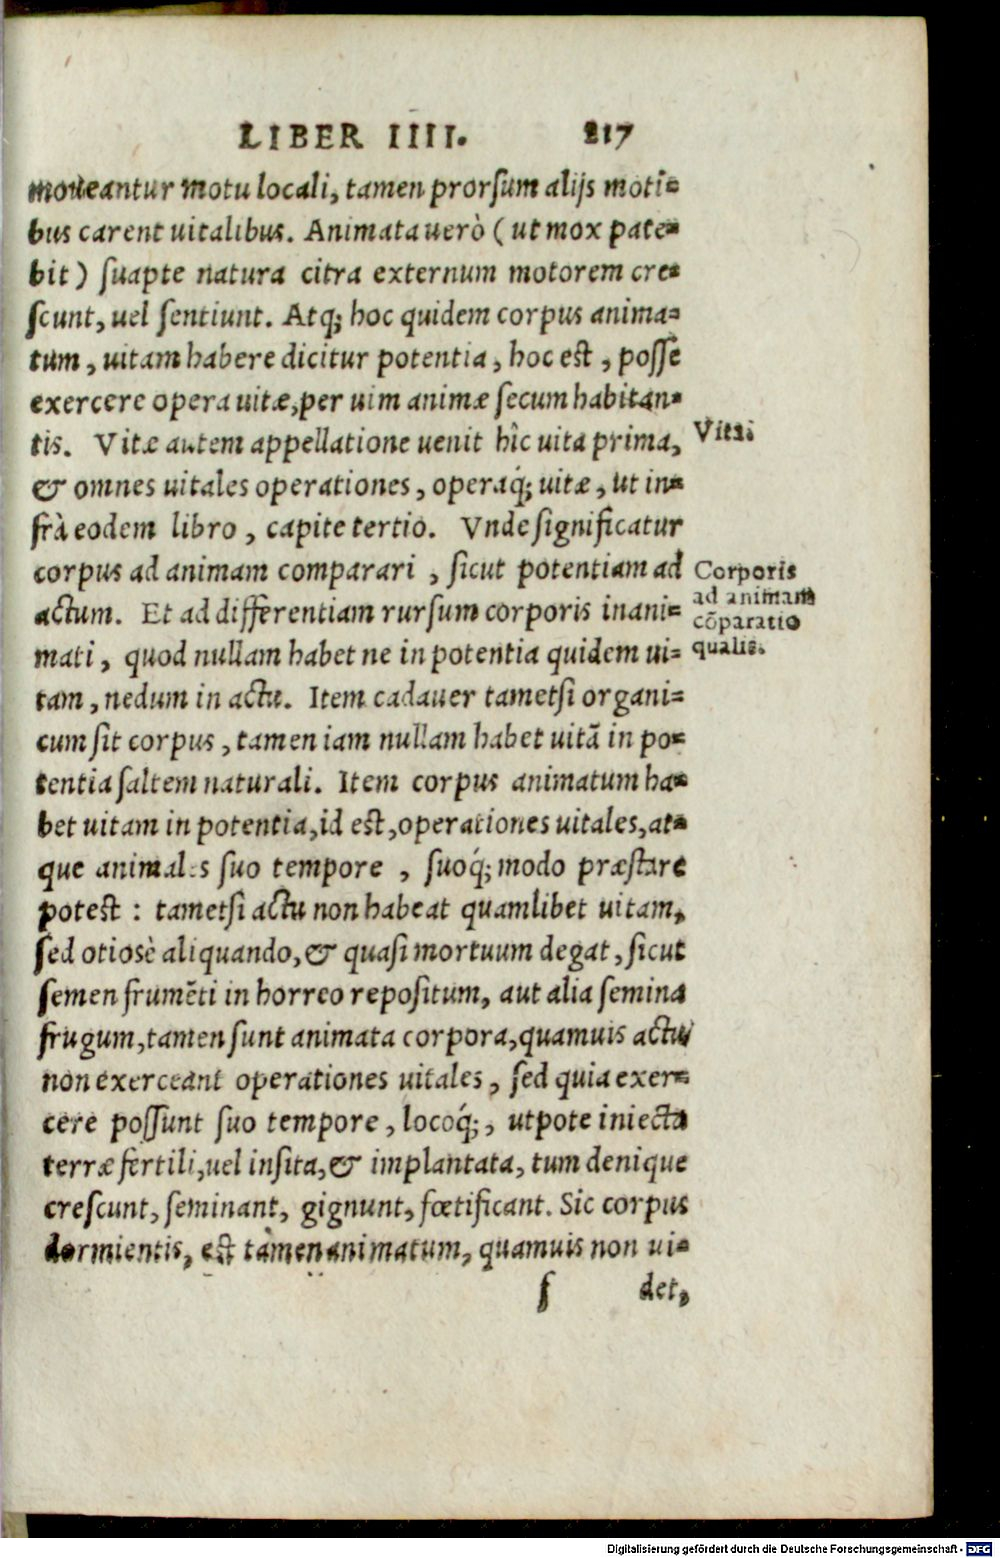 LIBER IIII. 217
moueantur motu locali, tamen prorsum alijs moti=
bus carent uitalibus. Animata uerò (ut mox pate=
bit) suapte natura citra externum motorem cre=
scunt, uel sentiunt. Atq; hoc quidem corpus anima=
tum, uitam habere dicitur potentia, hoc est, posse
exercere opera uitæ, per uim animæ secum habitan=
tis. Vitæ autem appellatione uenit hîc uita prima,
& omnes uitales operationes, operaq́; uitæ, ut in=
frà eodem libro, capite tertio. Vnde significatur
corpus ad animam comparari, sicut potentiam ad
actum. Et ad differentiam rursum corporis inani=
mati, quod nullam habet ne in potentia quidem ui=
tam, nedum in actu. Item cadauer tametsi organi=
cum sit corpus, tamen iam nullam habet uitã in po=
tentia saltem naturali. Item corpus animatum ha=
bet uitam in potentia, id est, operationes uitales, at=
que animales suo tempore, suoq́; modo præstare
potest: tametsi actu non habeat quamlibet uitam,
sed otiosè aliquando, & quasi mortuum degat, sicut
semen frumẽti in horreo repositum, aut alia semina
frugum, tamen sunt animata corpora, quamuis actu
non exerceant operationes uitales, sed quia exer=
cere possunt suo tempore, locoq́;, utpote iniecta
terræ fertili, uel insita, & implantata, tum denique
crescunt, seminant, gignunt, fœtificant. Sic corpus
dormientis, est tamen animatum, quamuis non ui=
f det,
Vita.
Corporis
ad animam
cõparatio
qualis.
Digitalisierung gefördert durch die Deutsche Forschungsgemeinschaft - DFG